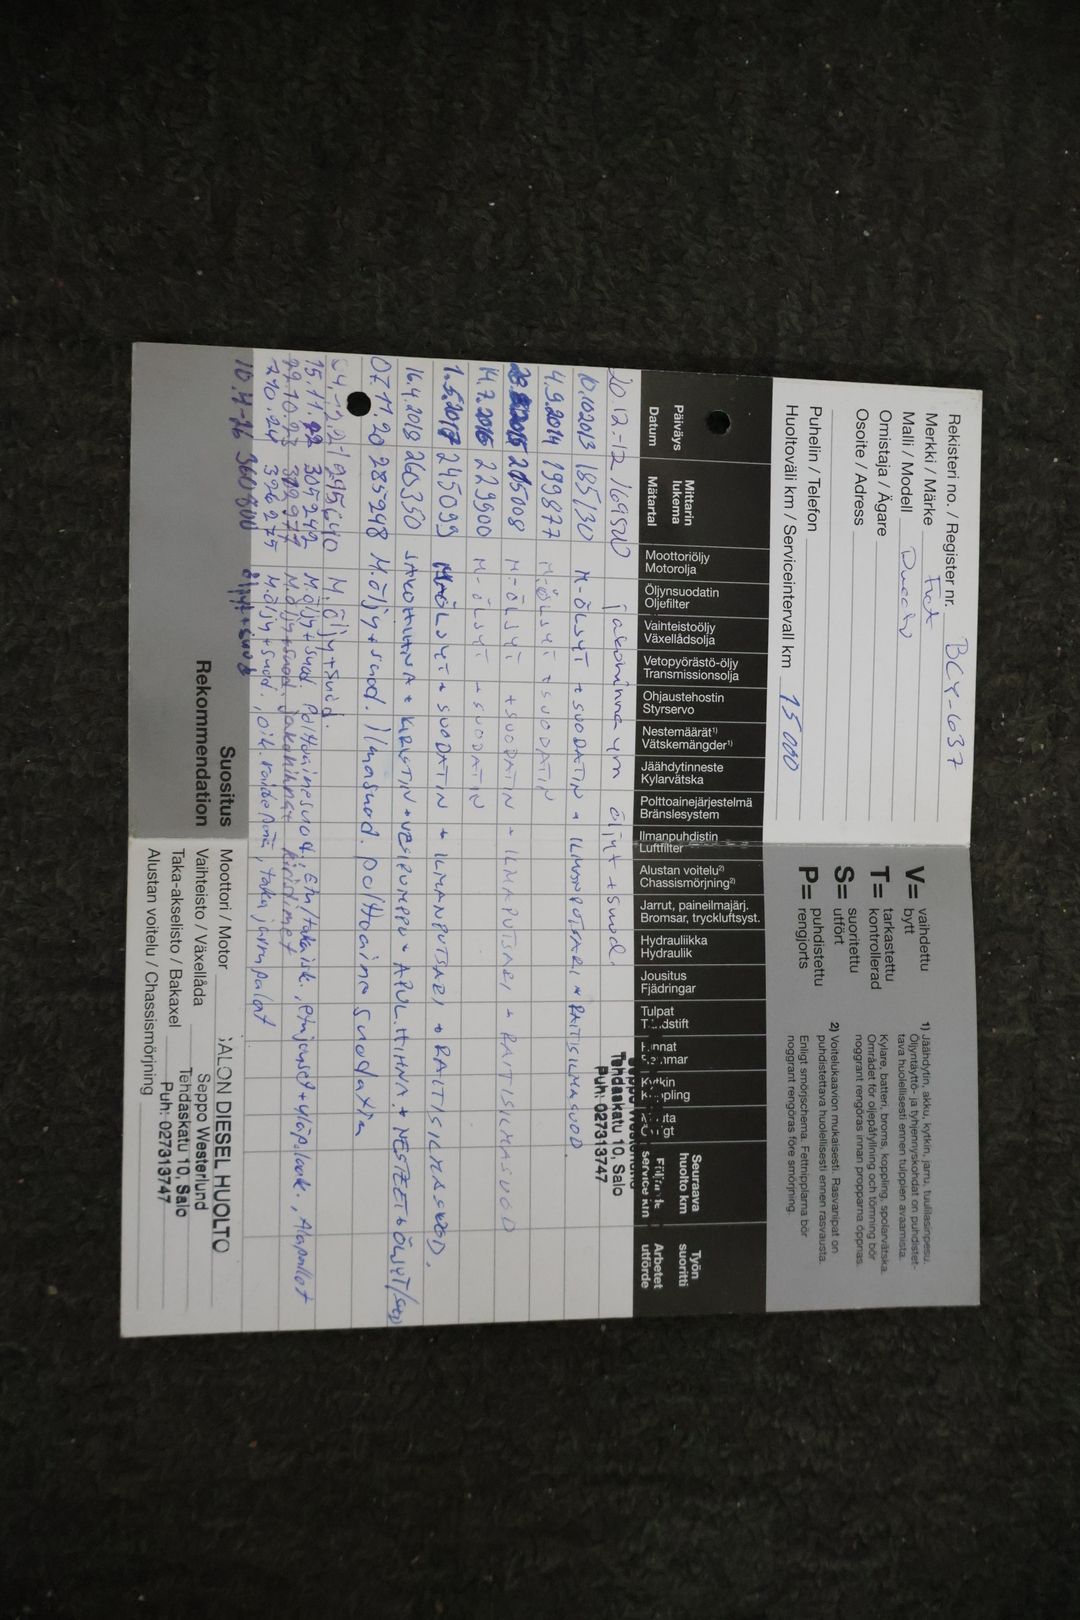 Rekisteri no. / Register nr. BCY-637
Merkki / Märke Fiat
Malli / Modell Ducato
Omistaja / Ägare
Osoite / Adress
Puhelin / Telefon
Huoltoväli km / Serviceintervall km 15 000
V= vaihdettu
bytt
T= tarkastettu
kontrollerad
S= suoritettu
utfört
P= puhdistettu
rengjorts
1) Jäähdytin, akku, kytkin, jarru, tuulilasinpesu.
Öljyntäyttö- ja tyhjennyskohdat on puhdistet-
tava huolellisesti ennen tulppien avaamista.
Kylare, batteri, broms, koppling, spolarvätska.
Området för oljepåfyllning och tömning bör
noggrant rengöras innan propparna öppnas.
2) Voitelukaavion mukaisesti. Rasvanipat on
puhdistettava huolellisesti ennen rasvausta.
Enligt smörjschema. Fettnipplarna bör
noggrant rengöras före smörjning.
Päiväys
Datum
Mittarin
lukema
Mätartal
Moottoriöljy
Motorolja
Öljynsuodatin
Oljefilter
Vaihteistoöljy
Växellådsolja
Vetopyörästö-öljy
Transmissionsolja
Ohjaustehostin
Styrservo
Nestemäärät1)
Vätskemängder1)
Jäähdytinneste
Kylarvätska
Polttoainejärjestelmä
Bränslesystem
Ilmanpuhdistin
Luftfilter
Alustan voitelu2)
Chassismörjning2)
Jarrut, paineilmajärj.
Bromsar, tryckluftsyst.
Hydrauliikka
Hydraulik
Jousitus
Fjädringar
Tulpat
Kytkin
Seuraava
huolto km
service km
Työn
suoritti
Arbetet
utförde
Tehdaskatu 10, Salo
Puh: 027313747
20.12.-12 169500 Jakohihna ym öljyt + suod.
10.10 2013 185130 M-ÖLJYT + SUODATIN + ILMANPUTSARI + RAITISILMASUOD.
4.9.2014 199877 M-ÖLJYT + SUODATIN
2015 215008 M-ÖLJYT + SUODATIN + ILMAPUTSARI + RAITISILMASUOD
14.7.2016 229900 M-ÖLJYT + SUODATIN
1.5.2017 245099 M-ÖLJYT + SUODATIN + ILMANPUTSARI + RAITISILMASUOD.
16.4.2019 260350 JAKOHIHNA + KIRISTIN + VESIPUMPPU + APULHIHNA + NESTEET + ÖLJYT/SUOD
07.11.20 285248 M.öljy + suod. Ilmasuod. polttoaine suodatin
M.öljy + suod.
15.11.22 305242 M.öljy + suod. Polttoainesuod.,
M.öljy + suod. Jakohihna + kiristimet
24 326275 M.öljy + suod., oik. raidepää, taka jarrupalat
360800 öljyt + suod
Suositus
Rekommendation
Moottori / Motor
Vaihteisto / Växellåda
Taka-akselisto / Bakaxel
Alustan voitelu / Chassismörjning
SALON DIESEL HUOLTO
Seppo Westerlund
Tehdaskatu 10, Salo
Puh: 027313747